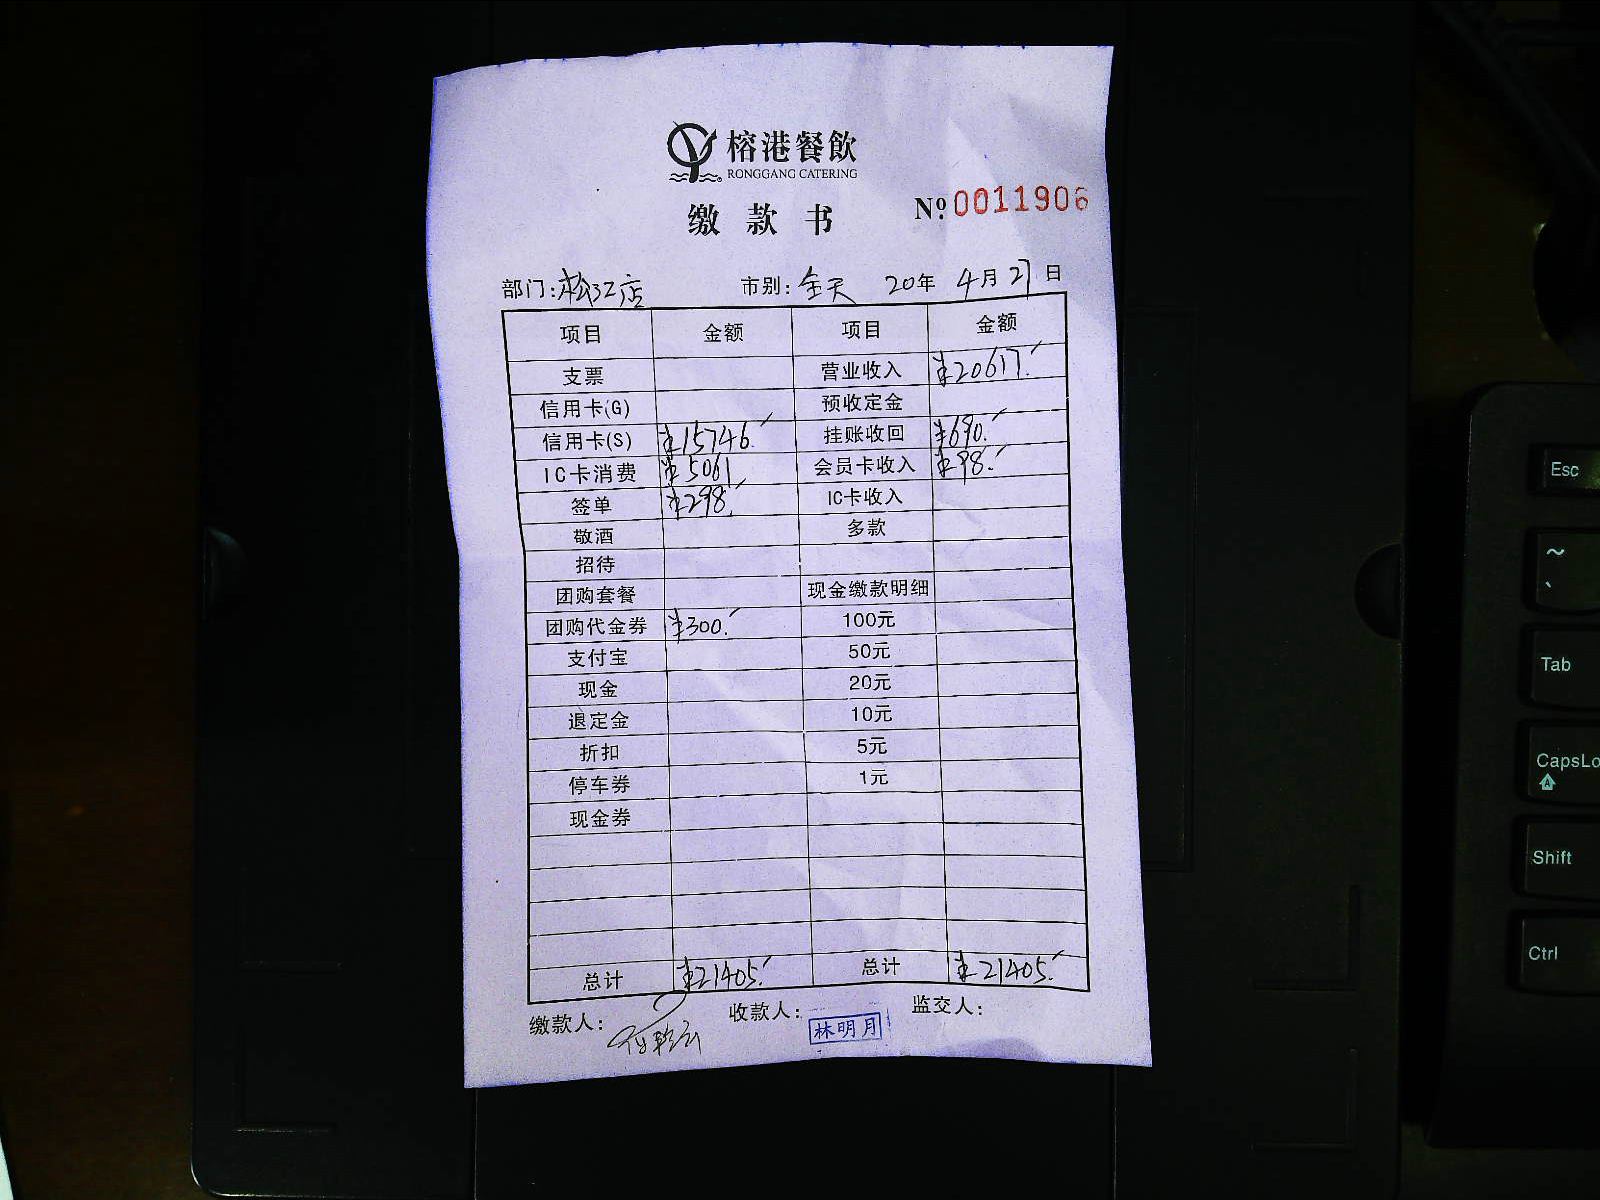 榕港餐飲
RONGGANG CATERING
缴款书 Nº.0011906
部门:松江店 市别:全天 20年 4月27日
项目 金额 项目 金额
支票 营业收入 ¥20617.
信用卡(G) 预收定金
信用卡(S) ¥15746. 挂账收回 ¥690.
IC卡消费 ¥5061 会员卡收入 ¥98.
签单 ¥298. IC卡收入
敬酒 多款
招待
团购套餐 现金缴款明细
团购代金券 ¥300. 100元
支付宝 50元
现金 20元
退定金 10元
折扣 5元
停车券 1元
现金券
总计 ¥21405. 总计 ¥21405.
缴款人: 收款人: 林明月 监交人:
Esc
~
`
Tab
CapsLo
A
Shift
Ctrl